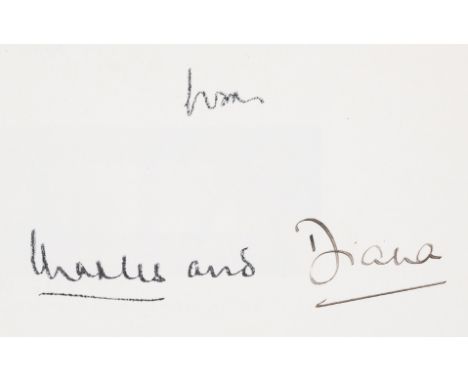 from
Charles and Diana